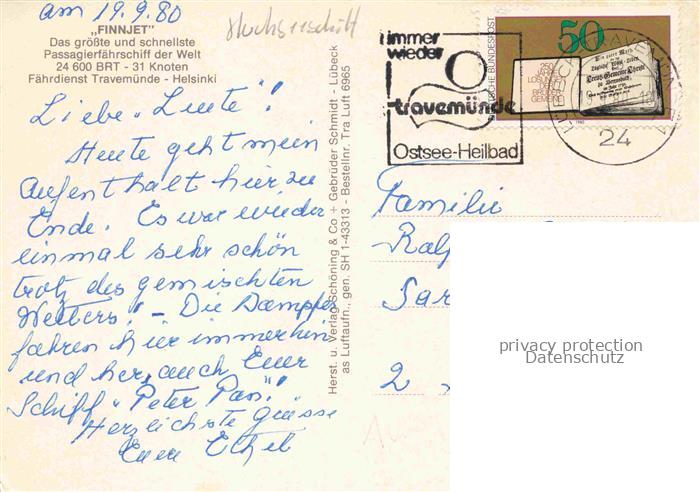 am 19.9.80
"FINNJET"
Das größte und schnellste
Passagierfährschiff der Welt
24 600 BRT - 31 Knoten
Fährdienst Travemünde - Helsinki
Liebe "Leute"!
Heute geht mein
Aufenthalt hier zu
Ende. Es war wieder
einmal sehr schön
trotz des gemischten
Wetters! - Die Dampfer
fahren hier immer hin
und her, auch Euer
Schiff "Peter Pan"!
Herzlichste Grüsse
Eure Ethel
Herst. u. Verlag Schöning & Co + Gebrüder Schmidt - Lübeck
as Luftaufn., gen. SH 1-43313 - Bestellnr. Tra Luft 6965
immer
wieder
travemünde
Ostsee-Heilbad
DEUTSCHE BUNDESPOST
50
250
JAHRE
LOSUNGEN
BRÜDER-
GEMEINE
24
Familie
Ralf
Sar
2
privacy protection
Datenschutz